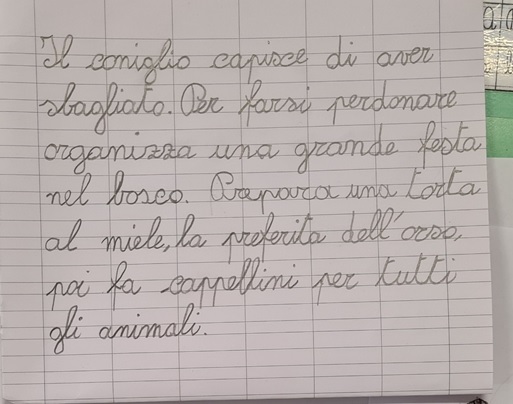 Il coniglio capisce di aver
sbagliato. Per farsi perdonare
organizza una grande festa
nel bosco. Prepara una torta
al miele, la preferita dell'orso,
poi fa cappellini per tutti
gli animali.